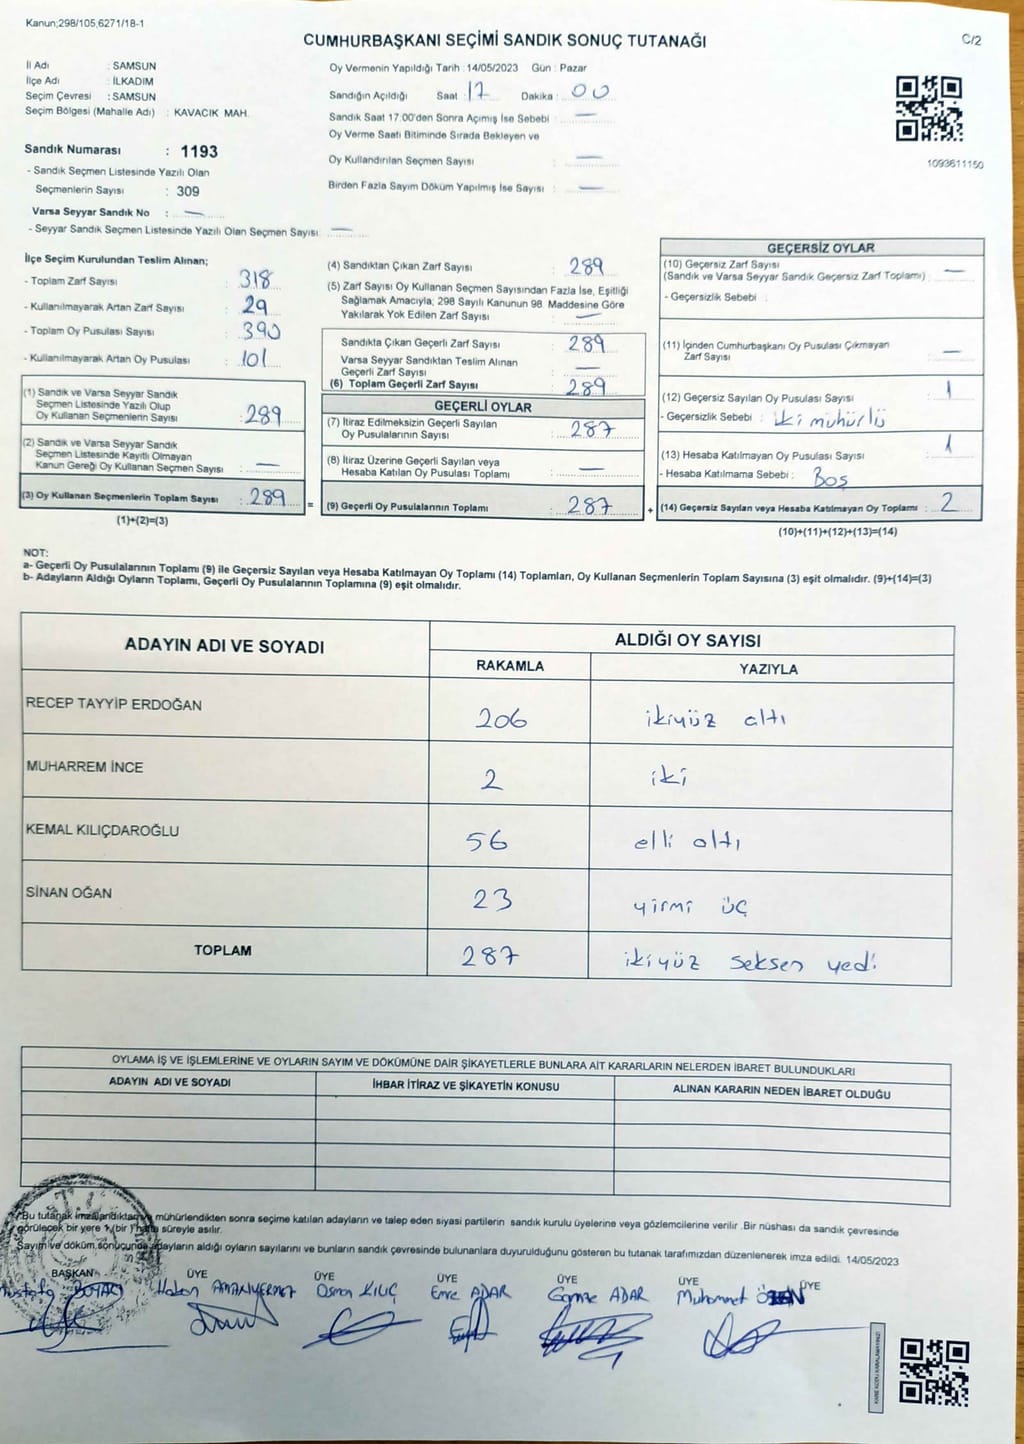 Kanun;298/105,6271/18-1
CUMHURBAŞKANI SEÇİMİ SANDIK SONUÇ TUTANAĞI
C/2
İl Adı : SAMSUN
İlçe Adı : İLKADIM
Seçim Çevresi : SAMSUN
Seçim Bölgesi (Mahalle Adı) : KAVACIK MAH.
Sandık Numarası : 1193
- Sandık Seçmen Listesinde Yazılı Olan
Seçmenlerin Sayısı : 309
Varsa Seyyar Sandık No : —
- Seyyar Sandık Seçmen Listesinde Yazılı Olan Seçmen Sayısı: —
Oy Vermenin Yapıldığı Tarih : 14/05/2023 Gün : Pazar
Sandığın Açıldığı Saat : 17 Dakika : 00
Sandık Saat 17.00'den Sonra Açılmış İse Sebebi : —
Oy Verme Saati Bitiminde Sırada Bekleyen ve
Oy Kullandırılan Seçmen Sayısı : —
Birden Fazla Sayım Döküm Yapılmış İse Sayısı : —
1093611150
İlçe Seçim Kurulundan Teslim Alınan;
- Toplam Zarf Sayısı : 318
- Kullanılmayarak Artan Zarf Sayısı : 29
- Toplam Oy Pusulası Sayısı : 390
- Kullanılmayarak Artan Oy Pusulası : 101
(1) Sandık ve Varsa Seyyar Sandık
Seçmen Listesinde Yazılı Olup
Oy Kullanan Seçmenlerin Sayısı : 289
(2) Sandık ve Varsa Seyyar Sandık
Seçmen Listesinde Kayıtlı Olmayan
Kanun Gereği Oy Kullanan Seçmen Sayısı : —
(3) Oy Kullanan Seçmenlerin Toplam Sayısı : 289
(1)+(2)=(3)
(4) Sandıktan Çıkan Zarf Sayısı : 289
(5) Zarf Sayısı Oy Kullanan Seçmen Sayısından Fazla İse, Eşitliği
Sağlamak Amacıyla; 298 Sayılı Kanunun 98. Maddesine Göre
Yakılarak Yok Edilen Zarf Sayısı : —
Sandıkta Çıkan Geçerli Zarf Sayısı : 289
Varsa Seyyar Sandıktan Teslim Alınan
Geçerli Zarf Sayısı : —
(6) Toplam Geçerli Zarf Sayısı : 289
GEÇERLİ OYLAR
(7) İtiraz Edilmeksizin Geçerli Sayılan
Oy Pusulalarının Sayısı : 287
(8) İtiraz Üzerine Geçerli Sayılan veya
Hesaba Katılan Oy Pusulası Toplamı : —
= (9) Geçerli Oy Pusulalarının Toplamı : 287
GEÇERSİZ OYLAR
(10) Geçersiz Zarf Sayısı
(Sandık ve Varsa Seyyar Sandık Geçersiz Zarf Toplamı) : —
- Geçersizlik Sebebi :
(11) İçinden Cumhurbaşkanı Oy Pusulası Çıkmayan
Zarf Sayısı : —
(12) Geçersiz Sayılan Oy Pusulası Sayısı : 1
- Geçersizlik Sebebi : iki mühürlü
(13) Hesaba Katılmayan Oy Pusulası Sayısı : 1
- Hesaba Katılmama Sebebi : Boş
+ (14) Geçersiz Sayılan veya Hesaba Katılmayan Oy Toplamı : 2
(10)+(11)+(12)+(13)=(14)
NOT:
a- Geçerli Oy Pusulalarının Toplamı (9) ile Geçersiz Sayılan veya Hesaba Katılmayan Oy Toplamı (14) Toplamları, Oy Kullanan Seçmenlerin Toplam Sayısına (3) eşit olmalıdır. (9)+(14)=(3)
b- Adayların Aldığı Oyların Toplamı, Geçerli Oy Pusulalarının Toplamına (9) eşit olmalıdır.
ADAYIN ADI VE SOYADI ALDIĞI OY SAYISI
RAKAMLA YAZIYLA
RECEP TAYYİP ERDOĞAN 206 ikiyüz altı
MUHARREM İNCE 2 iki
KEMAL KILIÇDAROĞLU 56 elli altı
SİNAN OĞAN 23 yirmi üç
TOPLAM 287 ikiyüz seksen yedi
OYLAMA İŞ VE İŞLEMLERİNE VE OYLARIN SAYIM VE DÖKÜMÜNE DAİR ŞİKAYETLERLE BUNLARA AİT KARARLARIN NELERDEN İBARET BULUNDUKLARI
ADAYIN ADI VE SOYADI İHBAR İTİRAZ VE ŞİKAYETİN KONUSU ALINAN KARARIN NEDEN İBARET OLDUĞU
T.C.
Bu tutanak imzalandıktan ve mühürlendikten sonra seçime katılan adayların ve talep eden siyasi partilerin sandık kurulu üyelerine veya gözlemcilerine verilir .Bir nüshası da sandık çevresinde
görülecek bir yere 1 (bir ) hafta süreyle asılır.
Sayım ve döküm sonucunda adayların aldığı oyların sayılarını ve bunların sandık çevresinde bulunanlara duyurulduğunu gösteren bu tutanak tarafımızdan düzenlenerek imza edildi. 14/05/2023
BAŞKAN ÜYE ÜYE ÜYE ÜYE ÜYE ÜYE
Mustafa BOYACI Hakan Osman KILIÇ Emre ADAR Gamze ADAR Muhammet